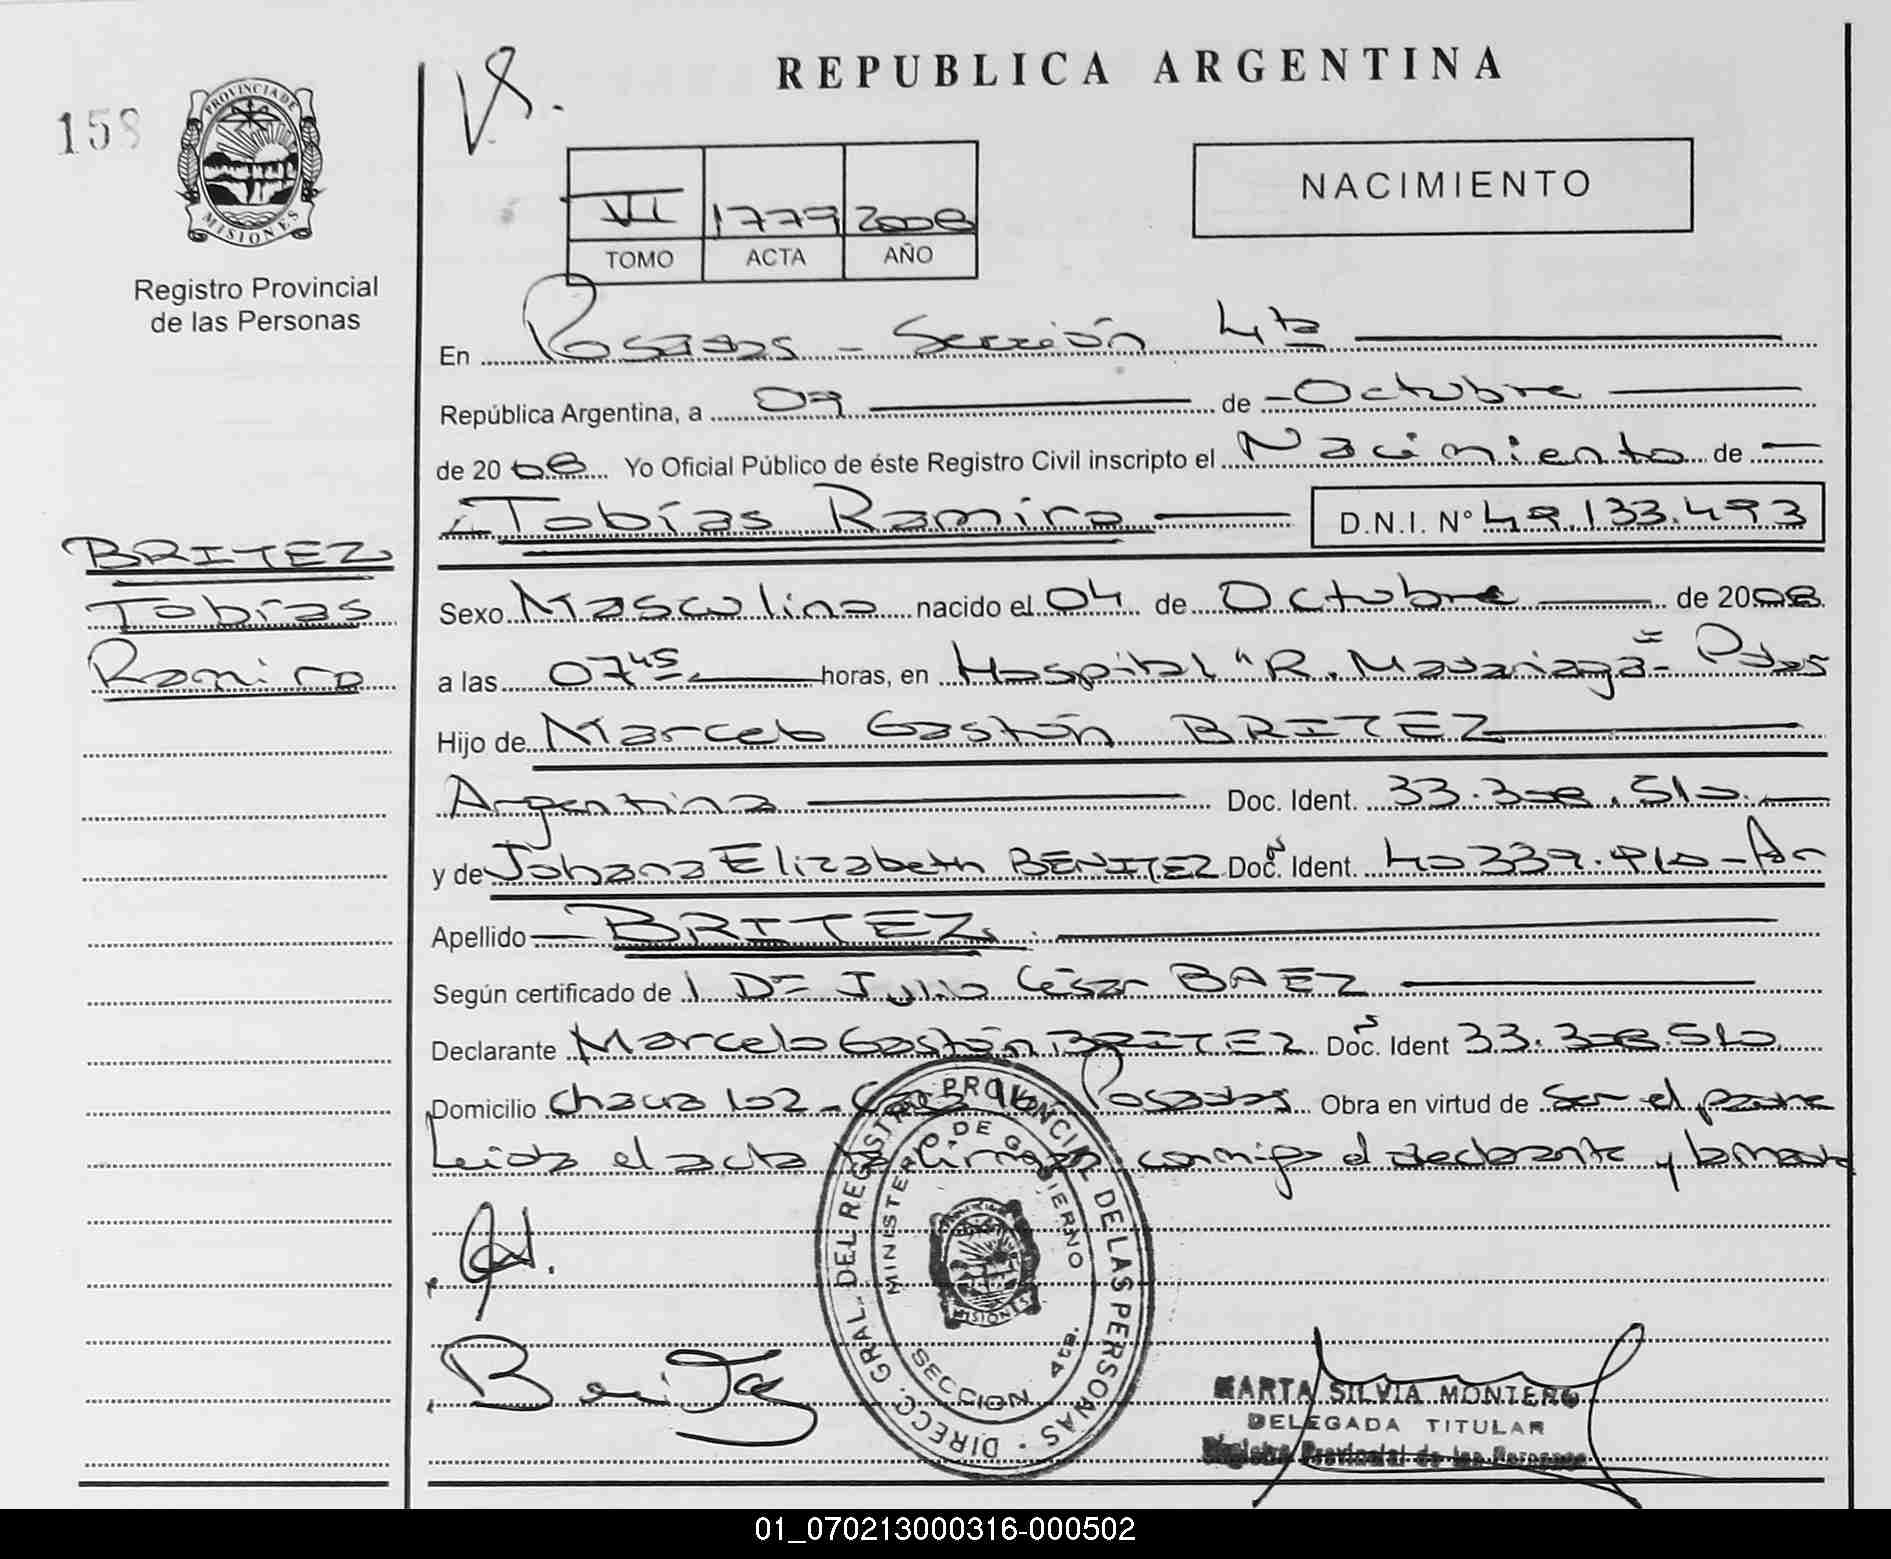 REPUBLICA ARGENTINA
158
PROVINCIA DE
MISIONES
Registro Provincial
de las Personas
NACIMIENTO
VI 1779 2008
TOMO ACTA AÑO
En Posadas - Sección 4ta
República Argentina, a 09 de - Octubre
de 2008 Yo Oficial Público de éste Registro Civil inscripto el Nacimiento de
Tobías Ramiro D.N.I. N° 49.133.493
BRITEZ
Tobías
Ramiro
Sexo Masculino nacido el 04 de Octubre de 2008
a las 07 45 horas, en Hospital "R. Madariaga" - Pdas
Hijo de Marcelo Gastón BRITEZ
Argentina Doc. Ident. 33.308.510.
y de Johana Elizabeth BENITEZ Doc. Ident. 40339.910 - Ar
Apellido BRITEZ
Según certificado de Dr Julio César BAEZ
Declarante Marcelo Gastón BRITEZ Doc. Ident 33.308.510
Domicilio chacra 102 - Casa 16 Posadas Obra en virtud de ser el padre
Leída el acta la firman conmigo el declarante y la madre
DIRECC. GRAL. DEL REGISTRO PROVINCIAL DE LAS PERSONAS
MINISTERIO DE GOBIERNO
MISIONES
SECCION 4ta.
Benitez
MARTA SILVIA MONTERO
DELEGADA TITULAR
Registro Provincial de las Personas
01_070213000316-000502